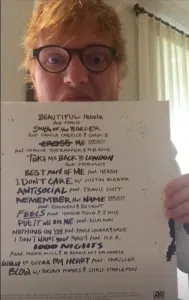 BEAUTIFUL PEOPLE
FEAT. KHALID
SOUTH OF THE BORDER
FEAT. CAMILA CABELLO & CARDI B
CROSS ME
FEAT. CHANCE THE RAPPER & PNB ROCK
TAKE ME BACK TO LONDON
FEAT. STORMZY
BEST PART OF ME FEAT. YEBBA
I DON'T CARE W/ JUSTIN BIEBER
ANTISOCIAL FEAT. TRAVIS SCOTT
REMEMBER THE NAME
FEAT. EMINEM & 50 CENT
FEELS FEAT. YOUNG THUG & J HUS
PUT IT ALL ON ME FEAT. ELLA MAI
NOTHING ON YOU FEAT. PAULO LONDRA & DAVE
I DON'T WANT YOUR MONEY FEAT. H.E.R.
1000 NIGHTS
FEAT. MEEK MILL & A BOOGIE WIT DA HOODIE
WAY TO BREAK MY HEART FEAT. SKRILLEX
BLOW W/ BRUNO MARS & CHRIS STAPLETON